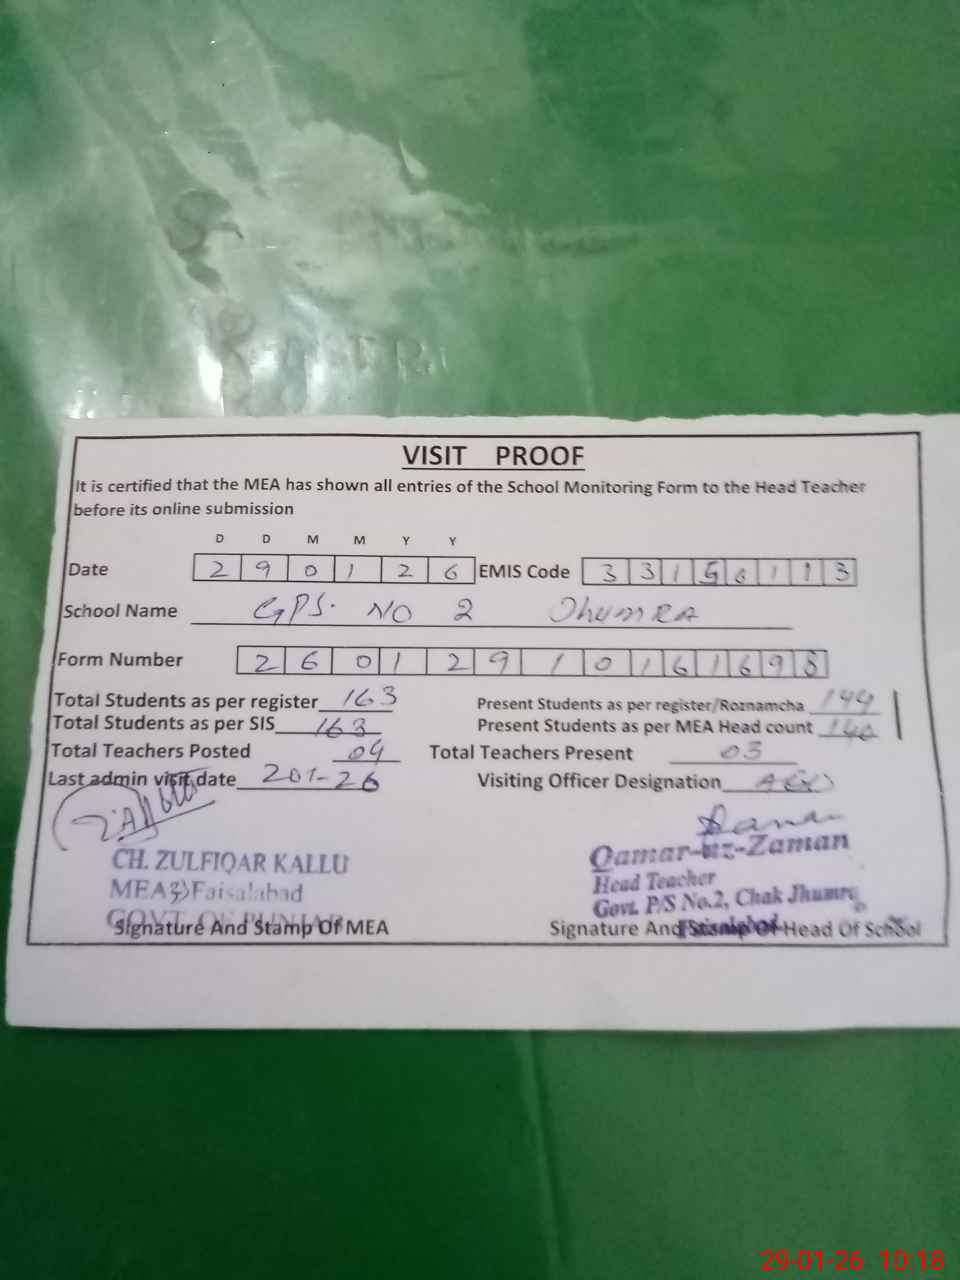 VISIT PROOF
It is certified that the MEA has shown all entries of the School Monitoring Form to the Head Teacher
before its online submission
D D M M Y Y
Date 2 9 0 1 2 6 EMIS Code 3 3 1 5 0 1 1 3
School Name GPS. NO 2 Jhumra
Form Number 2 6 0 1 2 9 1 0 1 6 1 6 9 8
Total Students as per register 163 Present Students as per register/Roznamcha 144
Total Students as per SIS 163 Present Students as per MEA Head count 140
Total Teachers Posted 04 Total Teachers Present 03
Last admin visit date 201-26 Visiting Officer Designation
CH. ZULFIQAR KALLU
MEA Faisalabad
GOVT. OF PUNJAB
Signature And Stamp Of MEA
Qamar-uz-Zaman
Head Teacher
Govt. P/S No.2, Chak Jhumra
Faisalabad
Signature And Stamp Of Head Of School
29-01-26 10:18